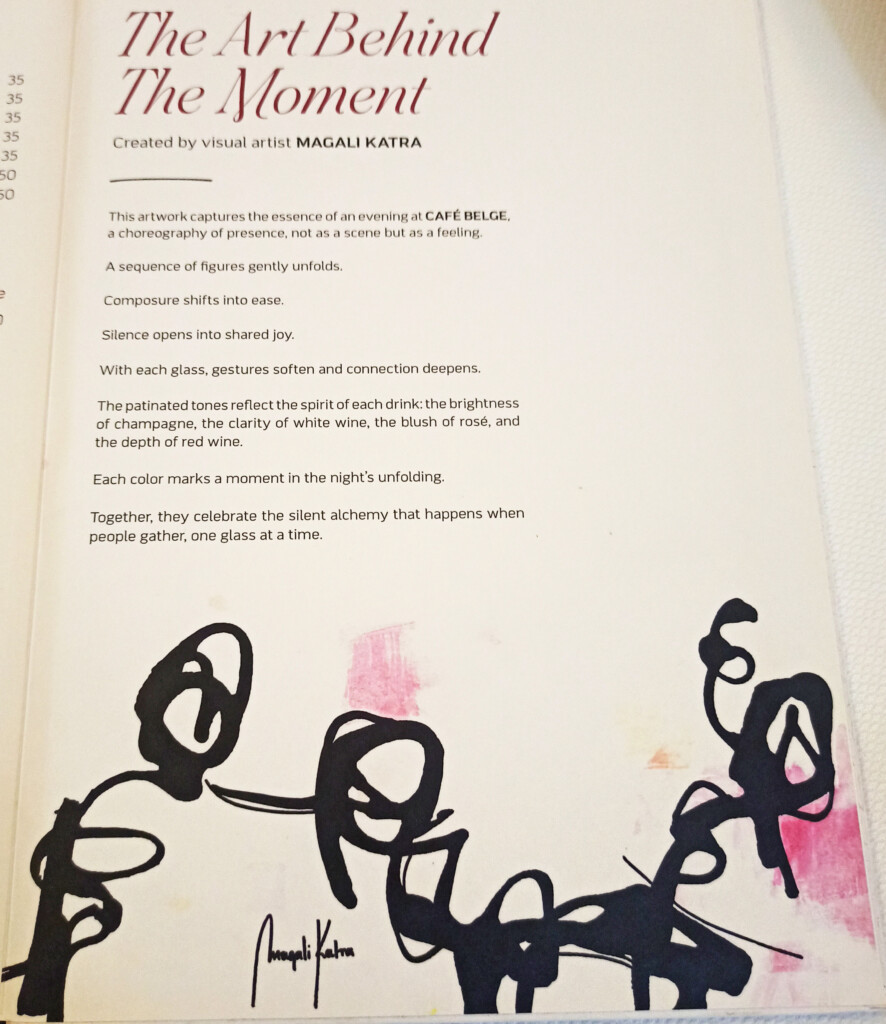 35
35
35
35
35
50
50
The Art Behind
The Moment
Created by visual artist MAGALI KATRA
This artwork captures the essence of an evening at CAFÉ BELGE,
a choreography of presence, not as a scene but as a feeling.
A sequence of figures gently unfolds.
Composure shifts into ease.
Silence opens into shared joy.
With each glass, gestures soften and connection deepens.
The patinated tones reflect the spirit of each drink: the brightness
of champagne, the clarity of white wine, the blush of rosé, and
the depth of red wine.
Each color marks a moment in the night's unfolding.
Together, they celebrate the silent alchemy that happens when
people gather, one glass at a time.
Magali Katra